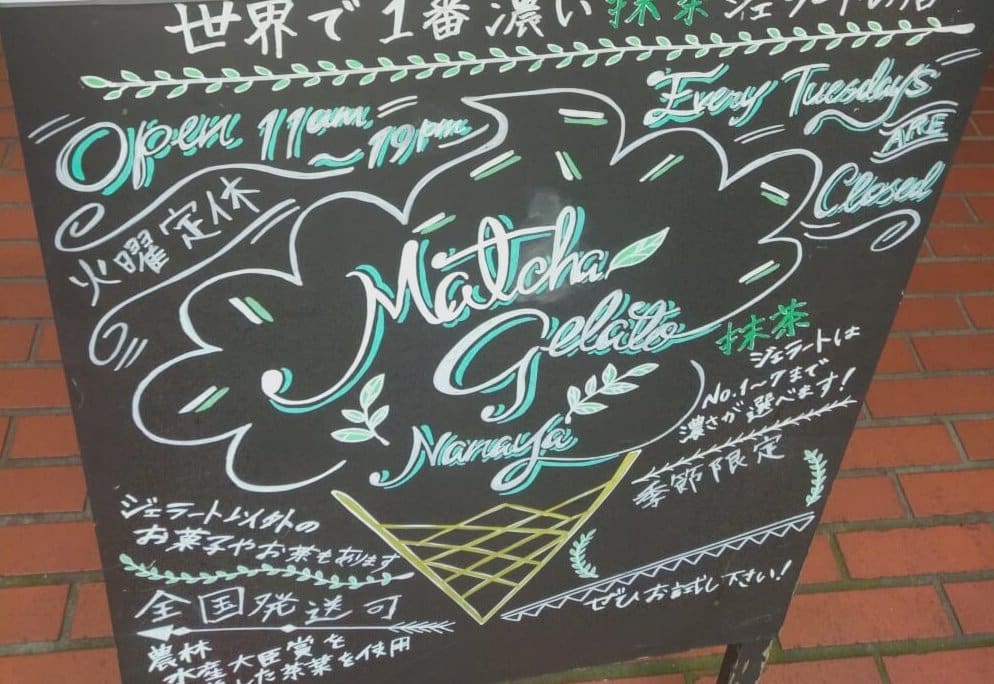 世界で1番濃い抹茶ジェラートの店
Open 11am
~19pm
Every Tuesdays
ARE
Closed
火曜定休
Matcha
Gelato
Nanaya
抹茶
ジェラートは
No.1~7まで
濃さが選べます!
季節限定
ぜひお試し下さい!
ジェラート以外の
お菓子やお茶もあります
全国発送可
農林
水産大臣賞を
した茶葉を使用